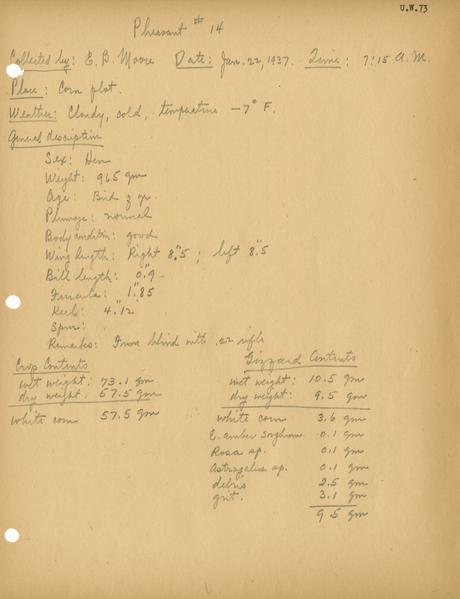 U.W. 73
Pheasant # 14
Collected by: E. B. Moore Date: Jan. 22, 1937. Time: 7:15 A.M.
Place: Corn plot.
Weather: Cloudy, cold, temperature -7° F.
General description
Sex: Hen
Weight: 965 gm
Age: Bird of yr.
Plumage: normal
Body condition: good
Wing length: Right 8."5; left 8."5
Bill length: 0."9
1."85
Keel: 4."12
Spur:
Remarks: From blind with .22 rifle
Crop Contents
wet weight: 73.1 gm
dry weight: 57.5 gm
white corn 57.5 gm
Gizzard Contents
wet weight: 10.5 gm
dry weight: 9.5 gm
white corn 3.6 gm
E. amber Sorghum 0.1 gm
Rosa sp. 0.1 gm
Astragalus sp. 0.1 gm
debris 2.5 gm
grit. 3.1 gm
9.5 gm